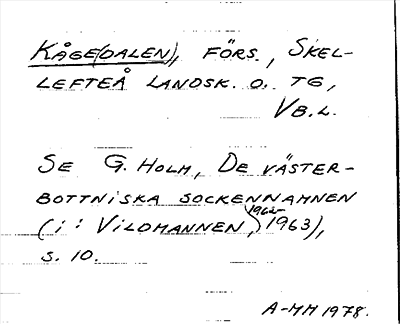 KÅGE(DALEN), FÖRS., SKEL-
LEFTEÅ LANDSK. O. TG,
VB.L.
SE G. HOLM, DE VÄSTER-
BOTTNISKA SOCKENNAMNEN
(i: VILDMANNEN, 1962-1963),
S. 10.
A-MM 1978.